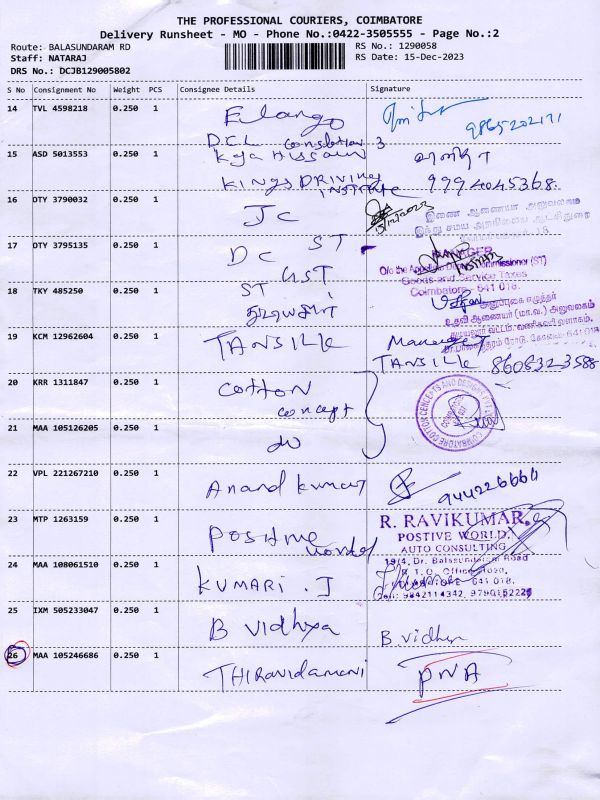 THE PROFESSIONAL COURIERS, COIMBATORE
Delivery Runsheet - MO - Phone No.:0422-3505555 - Page No.:2
Route: BALASUNDARAM RD
RS No.: 1290058
Staff: NATARAJ
RS Date: 15-Dec-2023
DRS No.: DCJB129005802
S No Consignment No Weight PCS Consignee Details Signature
14 TVL 4598218 0.250 1 Elango
9865202171
D.C.L 3
15 ASD 5013553 0.250 1 Kaja Hussain
KINGS DRIVING INSTITUTE 9994045368.
16 DTY 3790032 0.250 1 JC
15/12/2023
இணை ஆணையர் அலுவலகம்
17 DTY 3795135 0.250 1 DC ST
GST
MANAGER
Goods and Service Taxes
Coimbatore - 641 018.
18 TKY 485250 0.250 1 ST
19 KCM 12962604 0.250 1 TANSILK Manager
TANSILK 8608323588
20 KRR 1311847 0.250 1 Cotton concept
21 MAA 105126205 0.250 1 do
22 VPL 221267210 0.250 1 Anand kumar
23 MTP 1263159 0.250 1 Positive world
R. RAVIKUMAR,
POSTIVE WORLD,
AUTO CONSULTING
19/4, Dr. Balasundaram Road
24 MAA 108061510 0.250 1 KUMARI . J
Cell: 9842114342, 9790152225
25 IXM 505233047 0.250 1 B Vidhya B. vidhya
26 MAA 105246686 0.250 1 THIRavidamani PNA